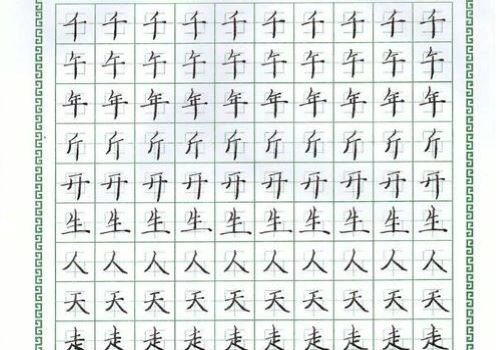 千千千千千千千千千千
午午午午午午午午午午
年年年年年年年年年年
斤斤斤斤斤斤斤斤斤斤
开开开开开开开开开开
生生生生生生生生生生
人人人人人人人人人人
天天天天天天天天天天
走走走走走走走走走走